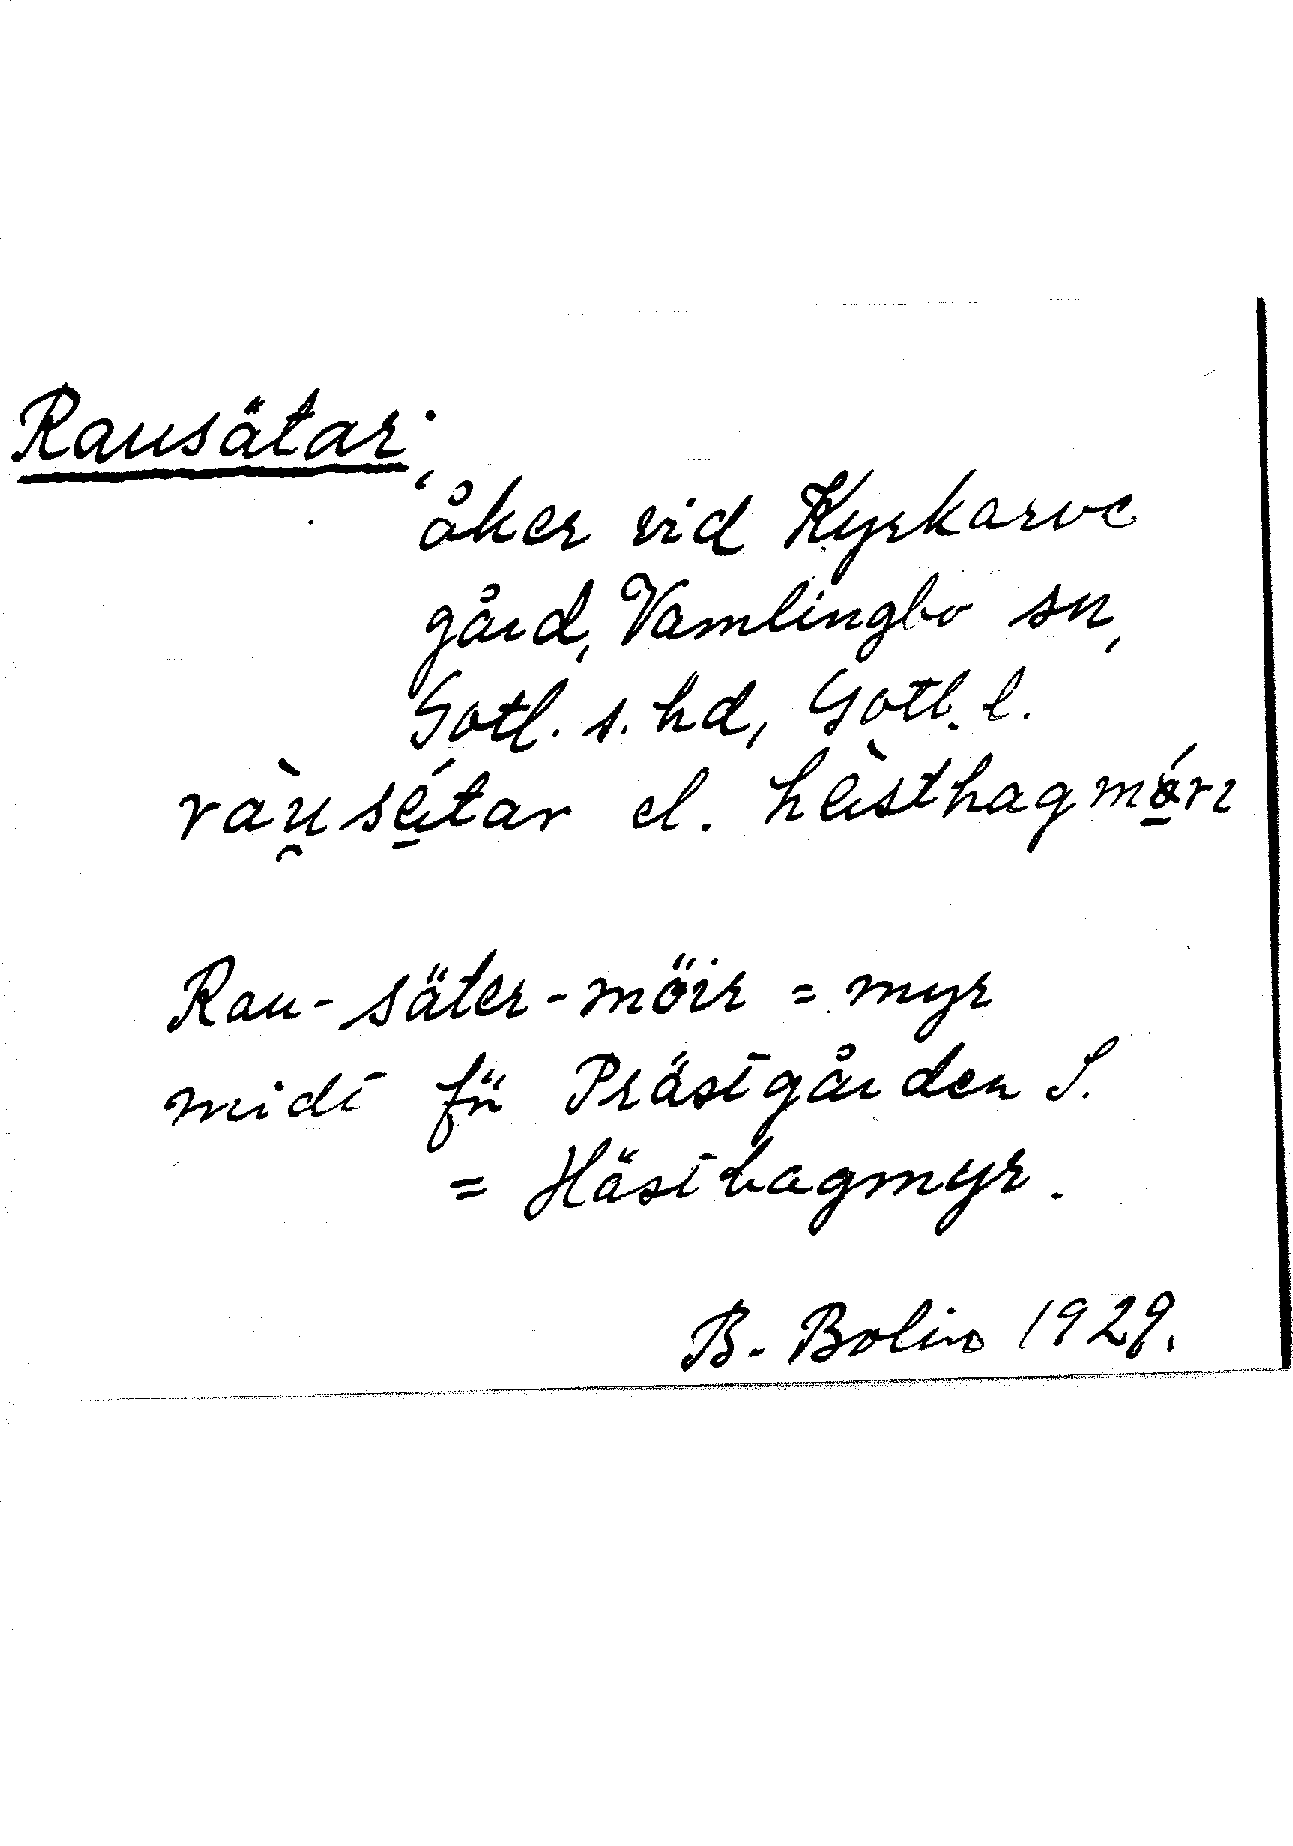 Rausätar,
åker vid Kyrkarve
gård, Vamlingbo sn,
Gotl. s. hd, Gotl. l.
ràu̯sä́tar el. hä̀sthagmǿrı
Rau-säter-möir = myr
midt för Prästgården S.
= Hästhagmyr.
B. Bolin 1929.